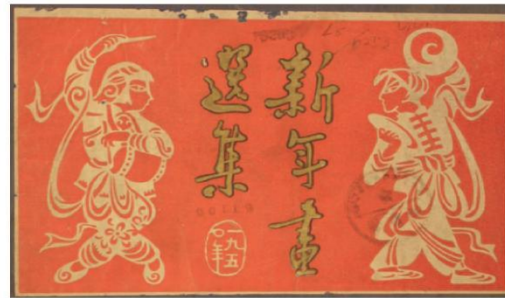 新年畫
選集
一九五
〇年